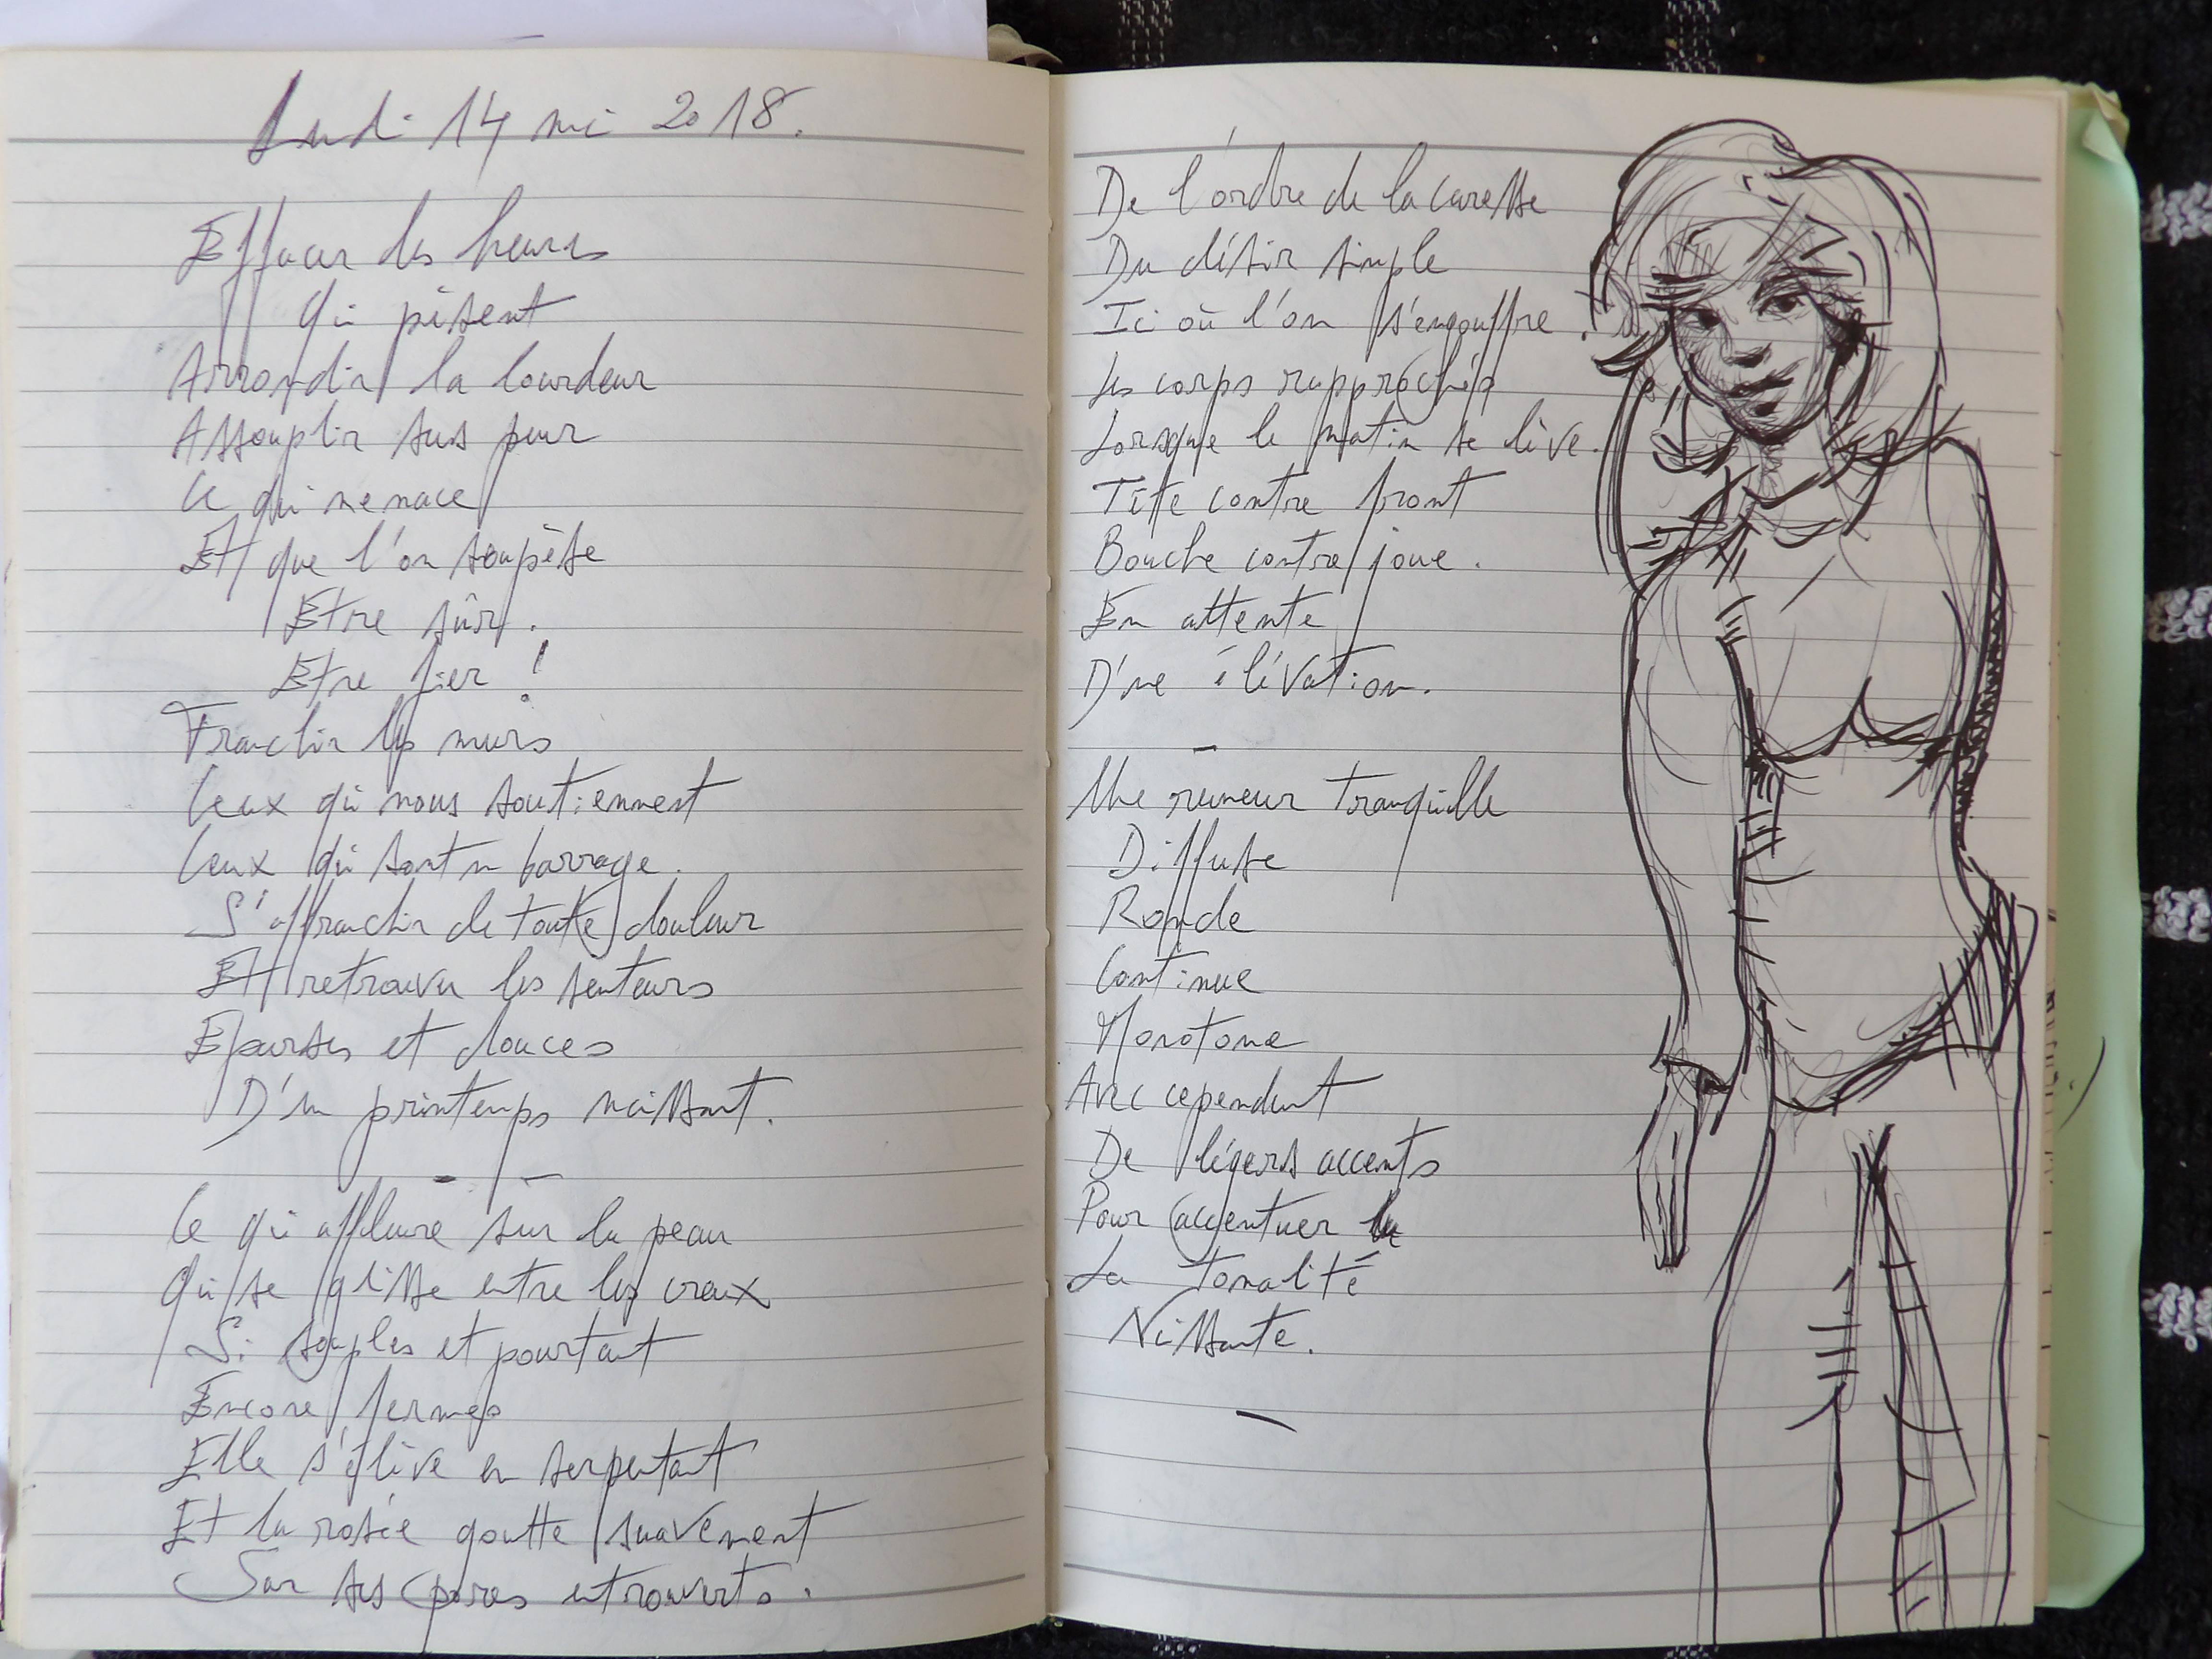 Lundi 14 mai 2018.
Effacer les heures
Qui pèsent
Arrondir la lourdeur
Assouplir sans peur
Ce qui menace
Et que l'on soupèse
Etre sûr.
Etre fier !
Franchir les murs
Ceux qui nous soutiennent
Ceux qui sont un barrage.
S'affranchir de toute douleur
Et retrouver les senteurs
Eparses et douces
D'un printemps naissant.
Ce qui affleure sur la peau
Qui se glisse entre les creux
Si souples et pourtant
Encore fermes
Elle s'élève en serpentant
Et la rosée goutte suavement
Sur ses pores entrouverts.
De l'ordre de la caresse
Du désir simple
Ici où l'on s'engouffre.
Les corps rapprochés
Lorsque le matin se lève.
Tête contre front
Bouche contre joue.
En attente
D'une élévation.
Une rumeur tranquille
Diffuse
Ronde
Continue
Monotone
Avec cependant
De légers accents
Pour accentuer
La tonalité
Naissante.